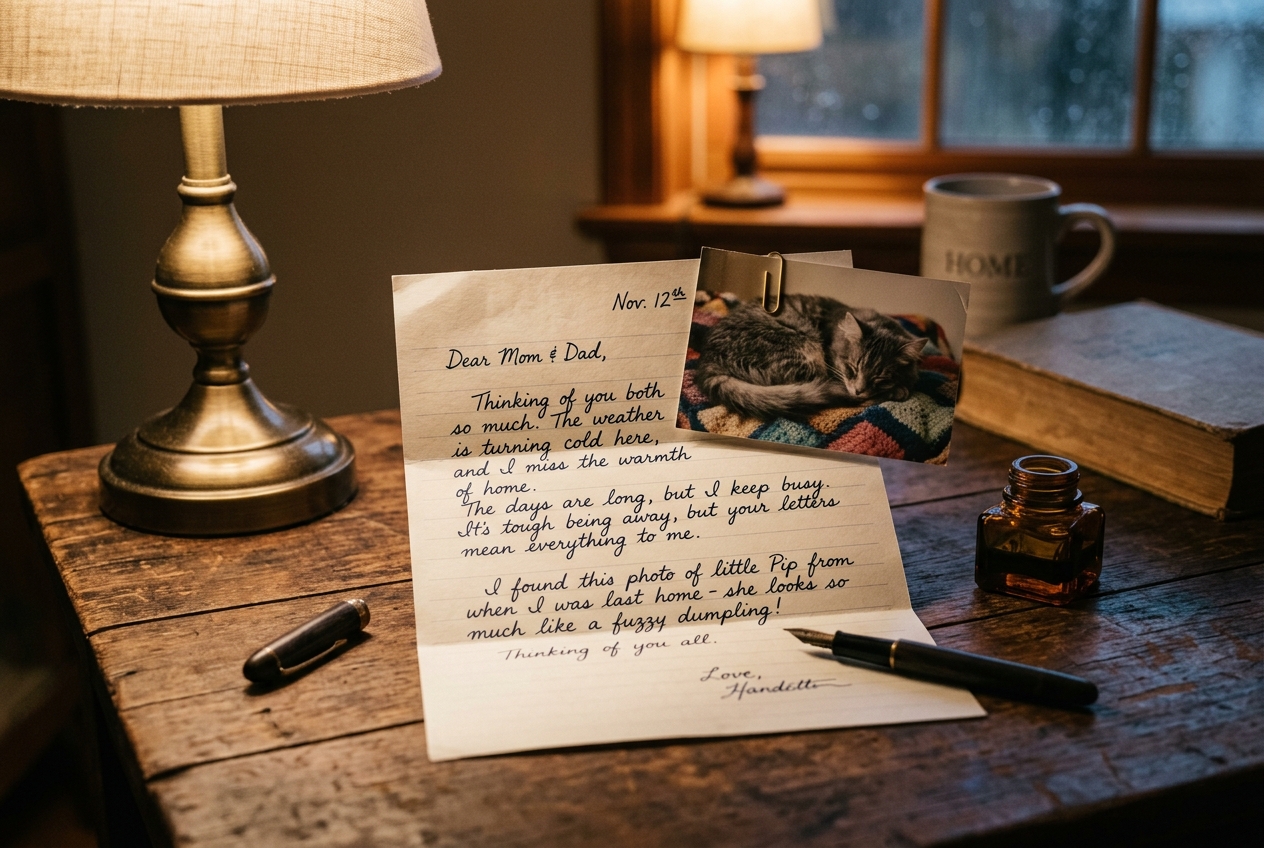 Nov. 12th
Dear Mom & Dad,
Thinking of you both
so much. The weather
is turning cold here,
and I miss the warmth
of home.
The days are long, but I keep busy.
It's tough being away, but your letters
mean everything to me.
I found this photo of little Pip from
when I was last home - she looks so
much like a fuzzy dumpling!
Thinking of you all.
Love,
HOME